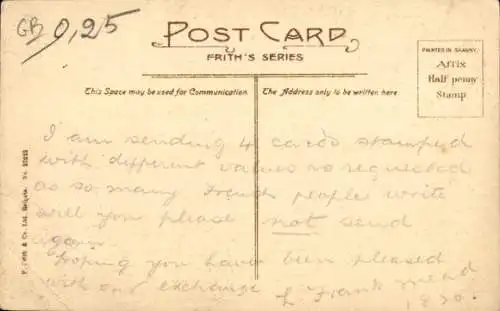 GB 0,25
POST CARD
FRITH'S SERIES
PRINTED IN SAXONY.
Affix
Half penny
Stamp
This Space may be used for Communication.
The Address only to be written here
I am sending 4 cards stamped
with different values as requested
as so many French people write
will you please not send
again
Hoping you have been pleased
with our exchange
L Frank
F. Frith & Co. Ltd. Reigate. No.